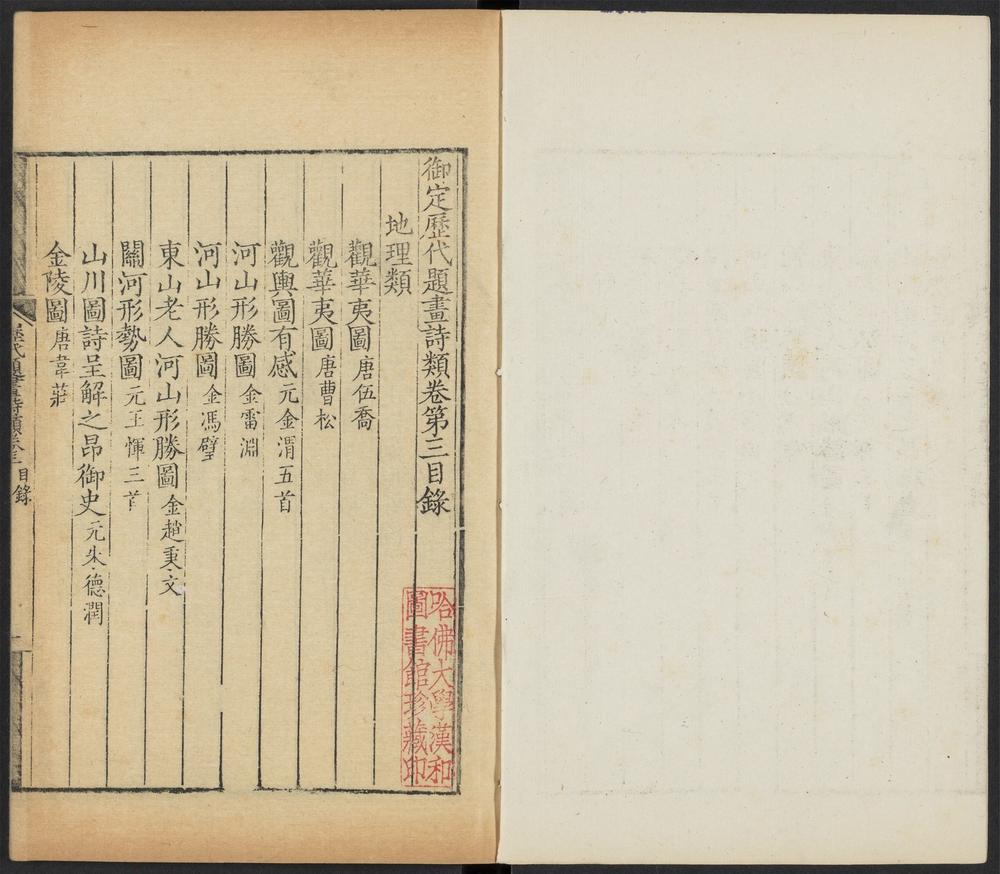 御定歷代題畫詩類卷第三目錄
地理類
觀華夷圖 唐伍喬
觀華夷圖 唐曹松
觀輿圖有感 元金渭五首
河山形勝圖 金雷淵
河山形勝圖 金馮璧
東山老人河山形勝圖 金趙秉文
關河形勢圖 元王惲三首
山川圖詩呈解之昂御史 元朱德潤
金陵圖 唐韋莊
歷代題畫詩類卷三 目錄
一
哈佛大學漢和
圖書館珍藏印